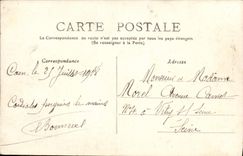 CARTE POSTALE
La Correspondance au recto n'est pas acceptée par tous les pays étrangers
(Se renseigner à la Poste).
Correspondance
Adresse
Caen, le 21 Juillet 19
Cordiales poignées de mains
Monsieur et Madame
Morel Avenue Carnot
à Vitry s/ Seine
Seine